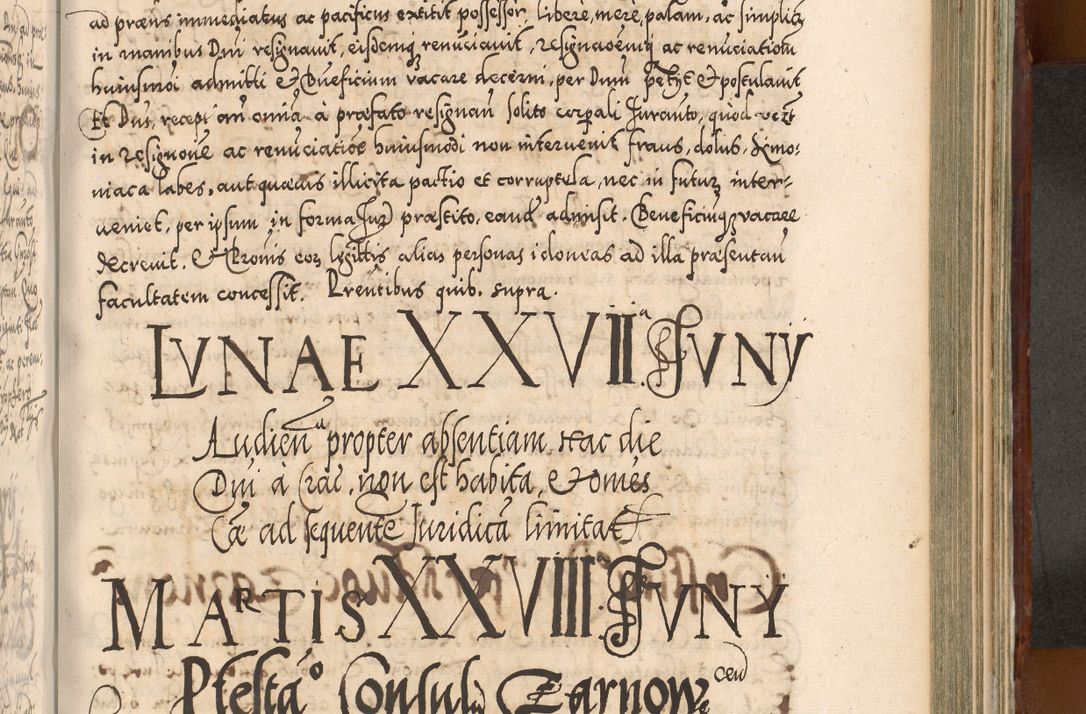 ad præns immediatus ac pacificus extitit possessor, libere, mere, palam, ac simplicr
in manibus Dni resignavit, eisdemq renuciavit, resignaoemq ac renuciationē
huiusmoi admitti & Beneficium vacare decerni, per Dnm petyt & postulavit
Et Dns, recepto ān omia à præfato resignan solito corpali Juranto, quòd
in resignone ac renuciatioe huiusmodi non intervenit fraus, dolus, Simo:
niaca labes, aut quævis illicita pactio et corruptela, nec in futur inter-
veniet, per ipsum in forma Jur præstito, eand admisit. Beneficiumq vacare
decrevit. & eor legittis alias personas idoneas ad illa præsentan
facultatem concessit. Prentibus quib. supra.
LVNAE XXVII a JVNY
Audien a propter absentiam hac die
Dni à Crac. non est habita, & omes
Cæ ad sequente Juridica limitat
MARTIS XXVIII JVNY
Ptesta o Consulu Tarnow cen